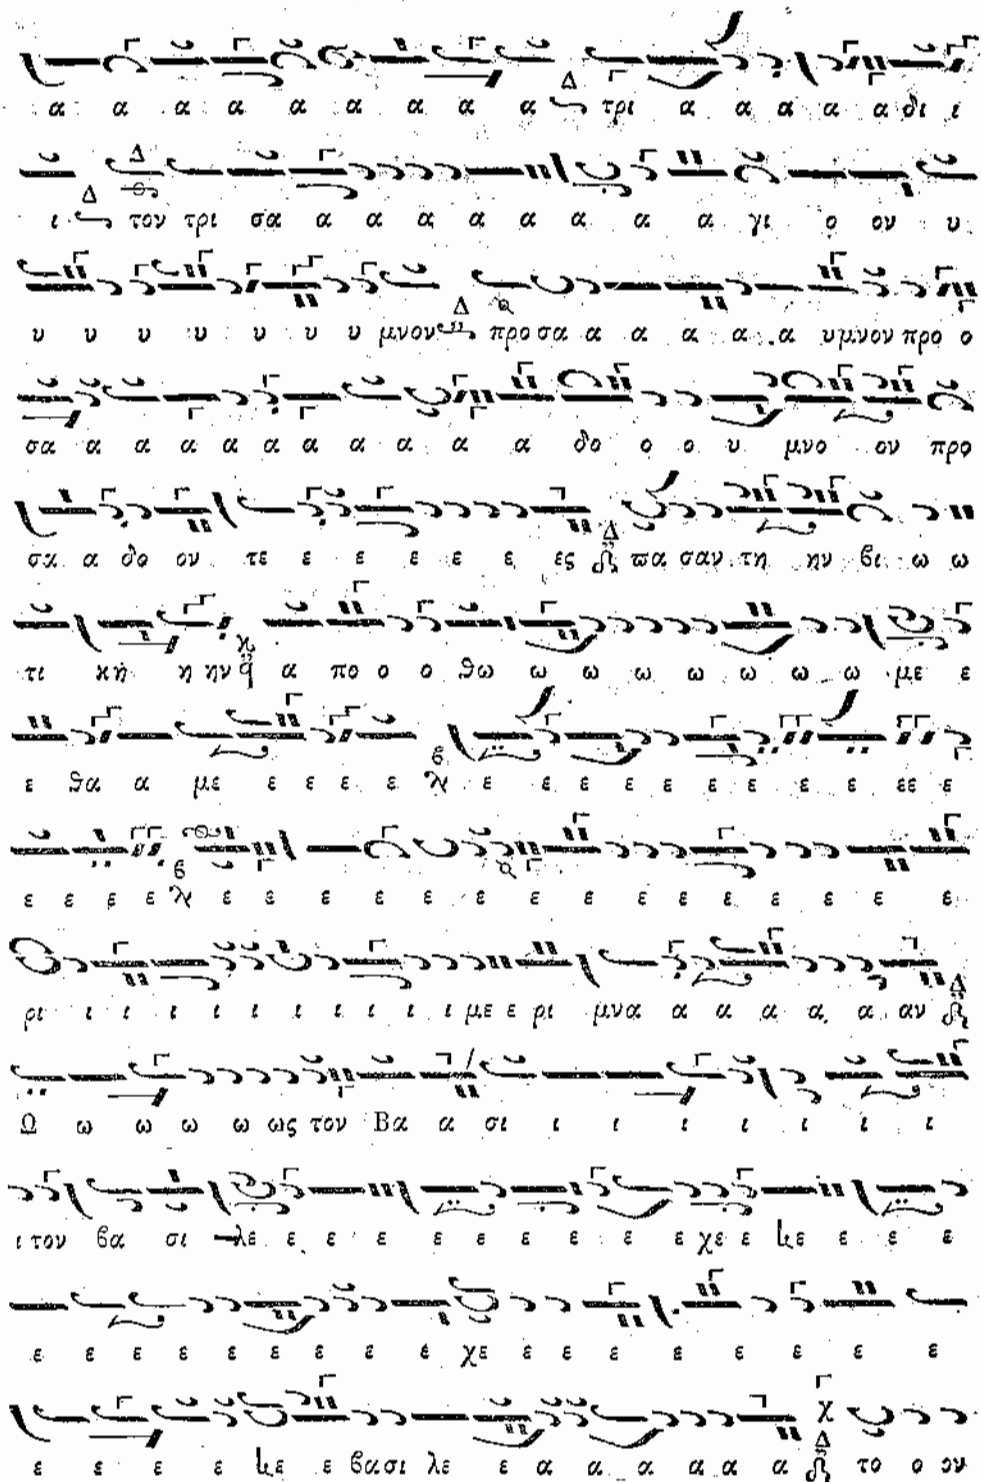 α α α α α α α α α τρι α α α α α δι ι
ι τον τρι σα α α α α α α α α γι ο ον υ
υ υ υ υ υ υ υ μνον προ σα α α α α α υμνον προ ο
σα α α α α α α α α α δο ο ο υ μνο ον προ
σα α δο ον τε ε ε ε ε ε ες πα σαν τη ην βι ω ω
τι κη η ην α πο ο ο θω ω ω ω ω ω ω ω με ε
ε θα α με ε ε ε ε ε ε ε ε ε ε ε ε ε εε ε
ε ε ε ε ε ε ε ε ε ε ε ε ε ε ε ε ε ε
ρι ι ι ι ι ι ι ι ι ι με ε ρι μνα α α α α α αν
Ω ω ω ω ω ως τον Βα α σι ι ι ι ι ι ι ι
ι τον βα σι λε ε ε ε ε ε ε ε ε ε χε ε κε ε ε ε
ε ε ε ε ε ε ε ε ε χε ε ε ε ε ε ε ε ε
ε ε ε ε κε ε βασι λε ε α α α α α α το ο ον